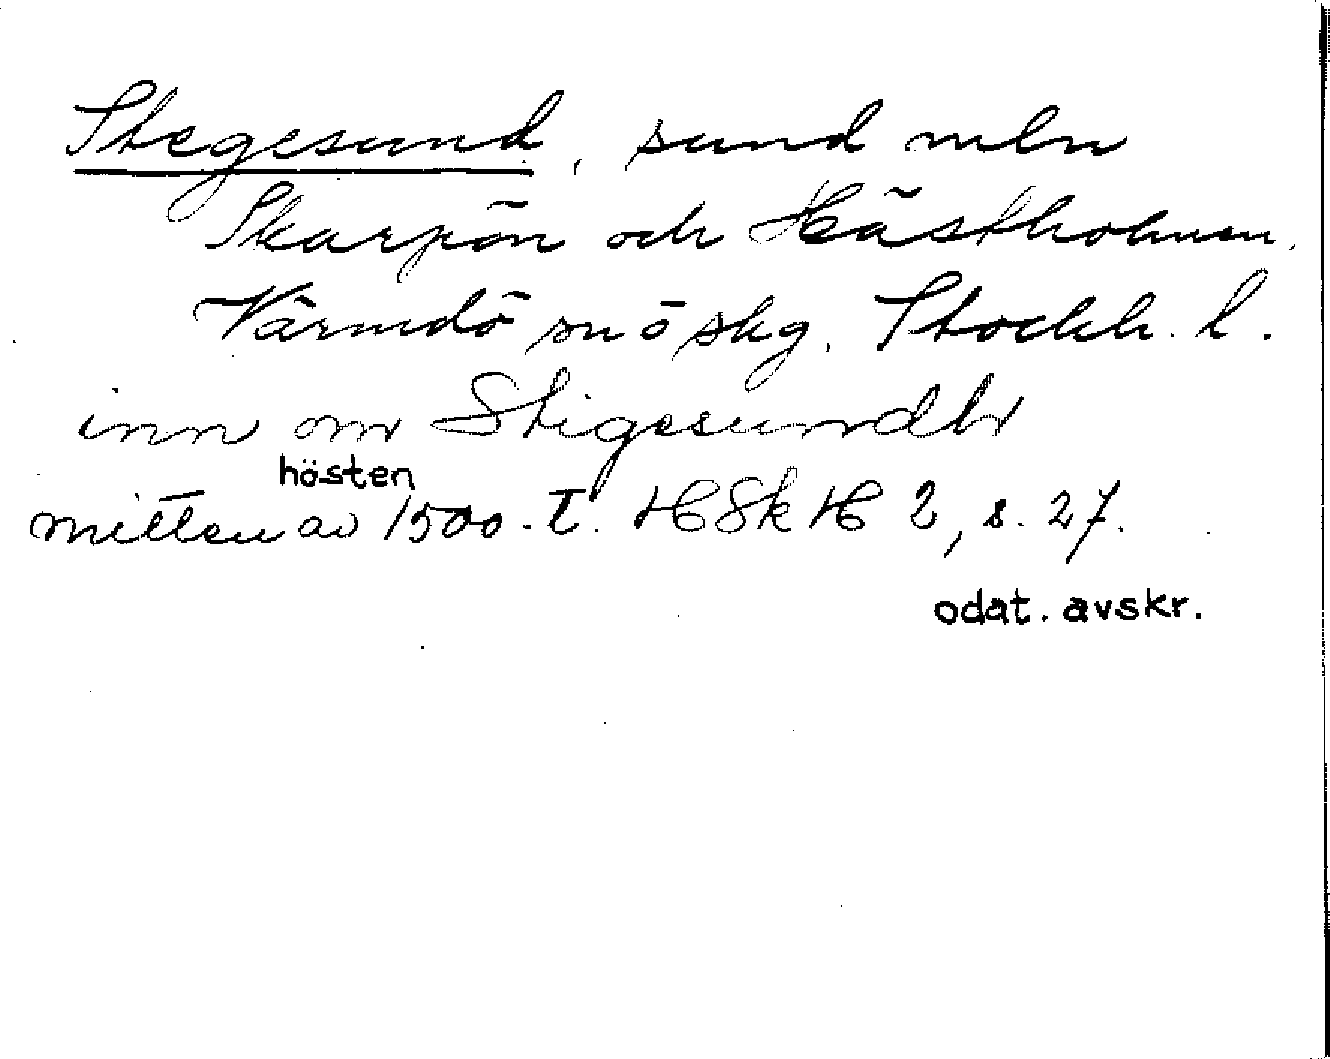 Stegesund, sund mln
Skarpön och Hästholmen.
Värmdö sn o skg. Stockh. l.
inn om Stigesundtr
hösten
mitten av 1500-t. HSkH 2, s. 27.
odat. avskr.